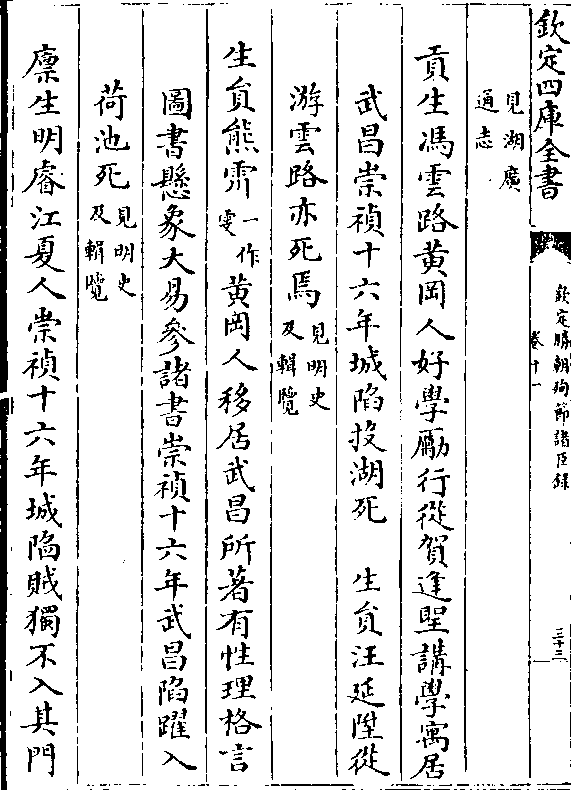 欽定四庫全書
欽定勝朝殉節諸臣錄
卷十一
三十三
見湖廣
通志
貢生馮雲路黄岡人好學勵行從賀逢聖講學寓居
武昌崇禎十六年城陷投湖死　生員汪延陞從
游雲路亦死焉見明史
及輯覽
生員熊霈一作
雯黄岡人移居武昌所著有性理格言
圖書懸象大易參諸書崇禎十六年武昌陷躍入
荷池死見明史
及輯覽
廪生明睿江夏人崇禎十六年城陷賊獨不入其門